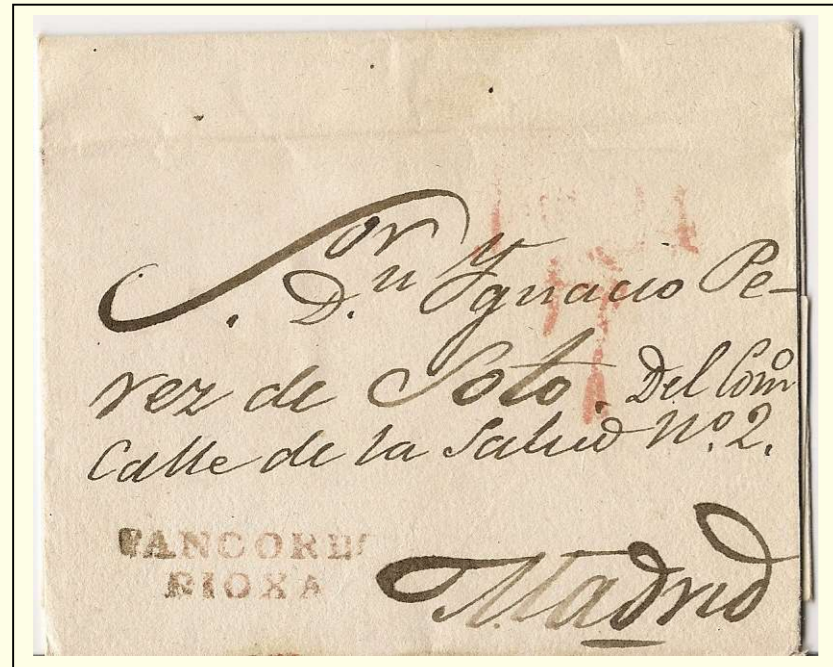 S.or D.n Ygnacio Pe-
rez de Soto. Del Com.o
Calle de la Salud No. 2.
Madrid
PANCORBO
RIOXA